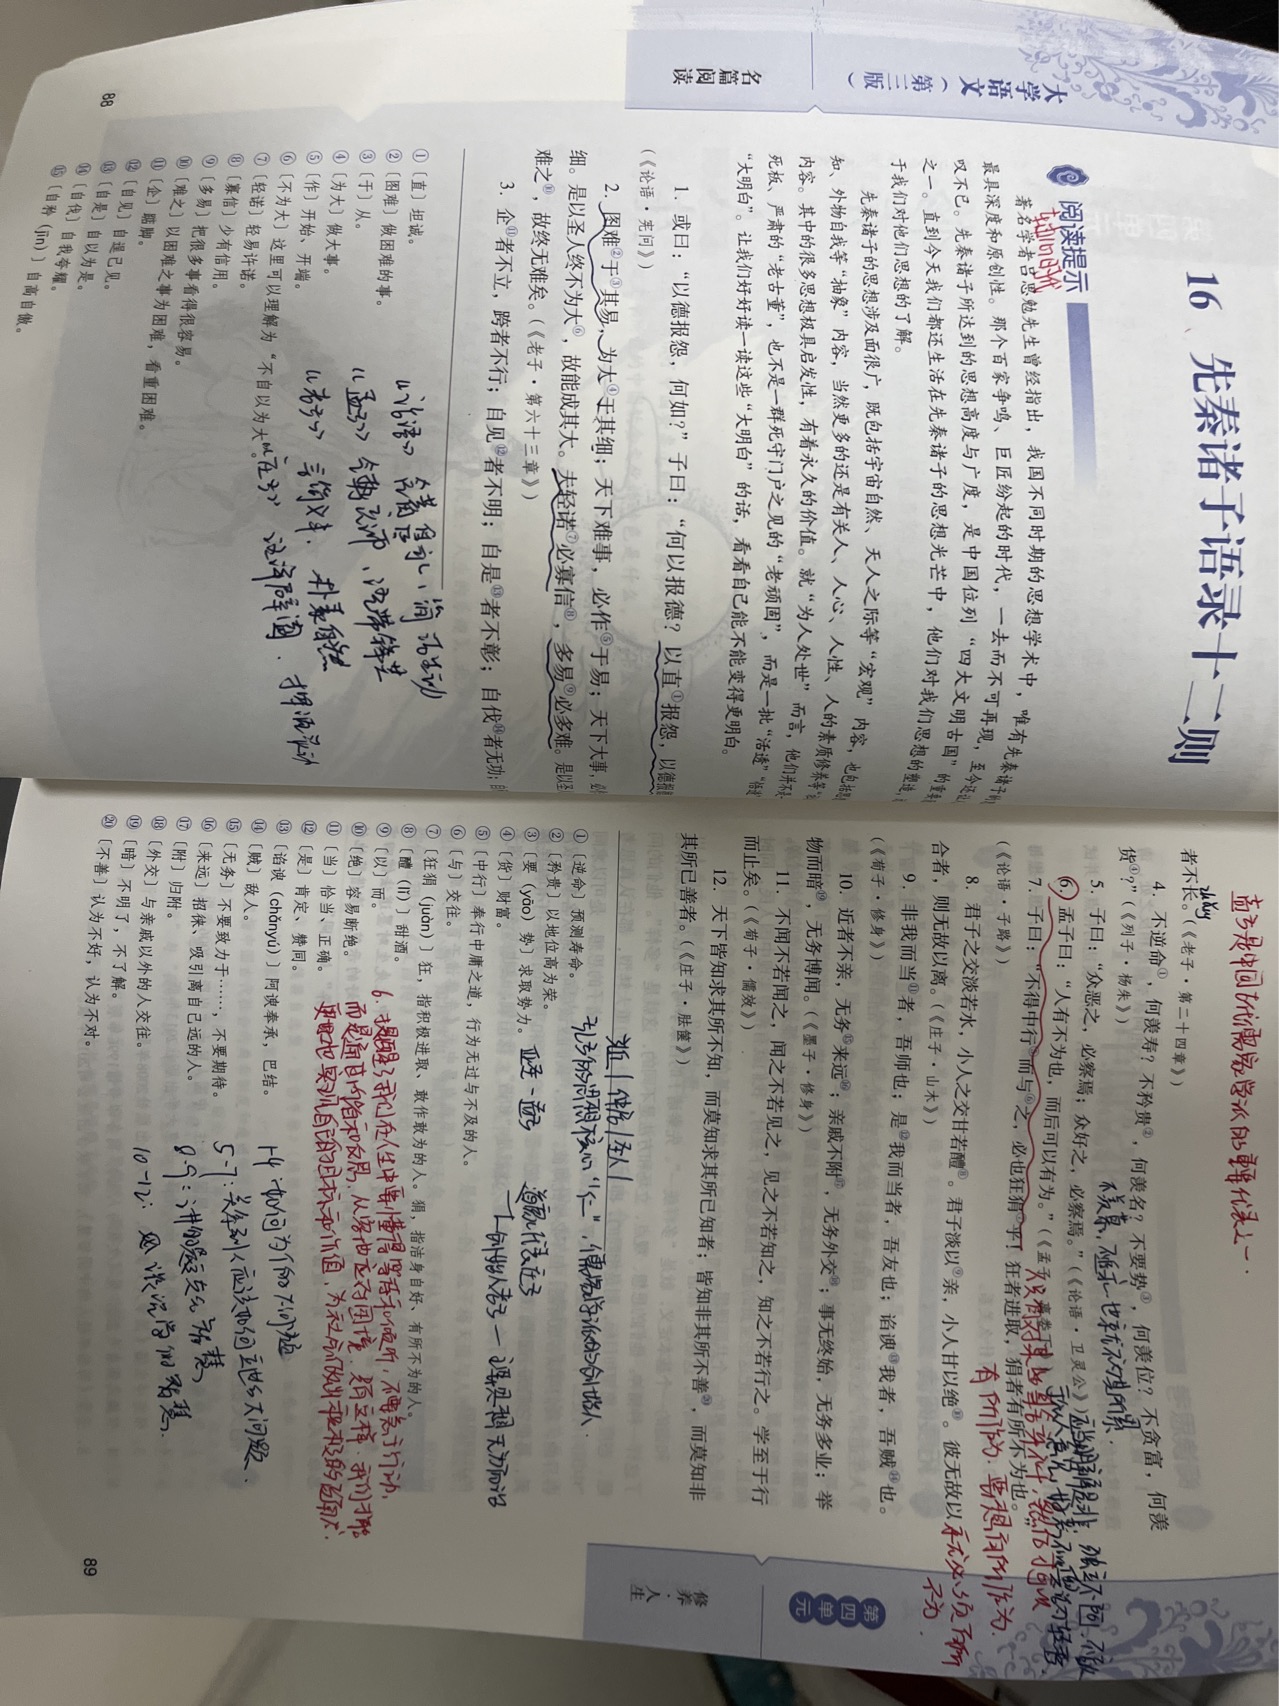 大学语文（第三版）
名篇阅读
16、先秦诸子语录十二则
阅读提示
著名学者吕思勉先生曾经指出，我国不同时期的思想学术中，唯有先秦诸子的
最具深度和原创性。那个百家争鸣、巨匠纷起的时代，一去而不可再现，至今还让
叹不已。先秦诸子所达到的思想高度与广度，是中国位列“四大文明古国”的重要
之一。直到今天我们都还生活在先秦诸子的思想光芒中，他们对我们思想的塑造，
于我们对他们思想的了解。
先秦诸子的思想涉及面很广，既包括宇宙自然、天人之际等“宏观”内容，也包括
知、外物自我等“抽象”内容，当然更多的还是有关人、人心、人性、人的素质修养等
内容。其中的很多思想极具启发性，有着永久的价值。就“为人处世”而言，他们并不是
死板、严肃的“老古董”，也不是一群死守门户之见的“老顽固”，而是一批“活透”“悟
“大明白”。让我们好好读一读这些“大明白”的话，看看自己能不能变得更明白。
1. 或曰：“以德报怨，何如？”子曰：“何以报德？以直①报怨，以德报
（《论语·宪问》）
2. 图难②于③其易，为大④于其细；天下难事，必作⑤于易；天下大事，必
细。是以圣人终不为大⑥，故能成其大。夫轻诺⑦必寡信⑧，多易⑨必多难。是以圣
难之⑩，故终无难矣。（《老子·第六十三章》）
3. 企⑪者不立，跨者不行；自见⑫者不明；自是⑬者不彰；自伐⑭者无功；自
① 〔直〕坦诚。
② 〔图难〕做困难的事。
③ 〔于〕从。
④ 〔为大〕做大事。
⑤ 〔作〕开始、开端。
⑥ 〔不为大〕这里可以理解为“不自以为大”。
⑦ 〔轻诺〕轻易许诺。
⑧ 〔寡信〕少有信用。
⑨ 〔多易〕把很多事看得很容易。
⑩ 〔难之〕以困难之事为困难，看重困难。
⑪ 〔企〕踮脚。
⑫ 〔自见〕自逞己见。
⑬ 〔自是〕自以为是。
⑭ 〔自伐〕自我夸耀。
⑮ 〔自矜（jīn）〕自高自傲。
《论语》
《孟子》
《老子》 朴素自然
《庄子》
88
孟子是中国古代儒家学派的重要代表之一.
者不长。（《老子·第二十四章》）
4. 不逆命①，何羡寿？不矜贵②，何羡名？不要势③，何羡位？不贪富，何羡
货④？”（《列子·杨朱》）
5. 子曰：“众恶之，必察焉；众好之，必察焉。”（《论语·卫灵公》）
6. 孟子曰：“人有不为也，而后可以有为。”（《孟子·离娄下》）
7. 子曰：“不得中行⑤而与⑥之，必也狂狷⑦乎！狂者进取，狷者有所不为也。”
（《论语·子路》）
8. 君子之交淡若水，小人之交甘若醴⑧。君子淡以⑨亲，小人甘以绝⑩。彼无故以
合者，则无故以离。（《庄子·山木》）
9. 非我而当⑪者，吾师也；是⑫我而当者，吾友也；谄谀⑬我者，吾贼⑭也。
（《荀子·修身》）
10. 近者不亲，无务⑮来远⑯；亲戚不附⑰，无务外交⑱；事无终始，无务多业；举
物而暗⑲，无务博闻。（《墨子·修身》）
11. 不闻不若闻之，闻之不若见之，见之不若知之，知之不若行之。学至于行
而止矣。（《荀子·儒效》）
12. 天下皆知求其所不知，而莫知求其所已知者；皆知非其所不善⑳，而莫知非
其所已善者。（《庄子·胠箧》）
有所作为，要想有所作为
① 〔逆命〕预测寿命。
② 〔矜贵〕以地位高为荣。
③ 〔要（yāo）势〕求取势力。
④ 〔货〕财富。
⑤ 〔中行〕奉行中庸之道，行为无过与不及的人。
⑥ 〔与〕交往。
⑦ 〔狂狷（juàn）〕狂，指积极进取、敢作敢为的人。狷，指洁身自好、有所不为的人。
⑧ 〔醴（lǐ）〕甜酒。
⑨ 〔以〕而。
⑩ 〔绝〕容易断绝。
⑪ 〔当〕恰当，正确。
⑫ 〔是〕肯定，赞同。
⑬ 〔谄谀（chǎnyú）〕阿谀奉承，巴结。
⑭ 〔贼〕敌人。
⑮ 〔无务〕不要致力于……，不要期待。
⑯ 〔来远〕招徕、吸引离自己远的人。
⑰ 〔附〕归附。
⑱ 〔外交〕与亲戚以外的人交往。
⑲ 〔暗〕不明了，不了解。
⑳ 〔不善〕认为不好，认为不对。
孔子的思想核心“仁”，儒家学派的创始人.
亚圣—孟子 道家代表庄子
创始人老子—主要思想无为而治
1-4 如何为人的大问题
5-7：关系到人应该如何立世的大问题.
8-9：讲的是交友的智慧
10-12：
第四单元
修养·人生
89